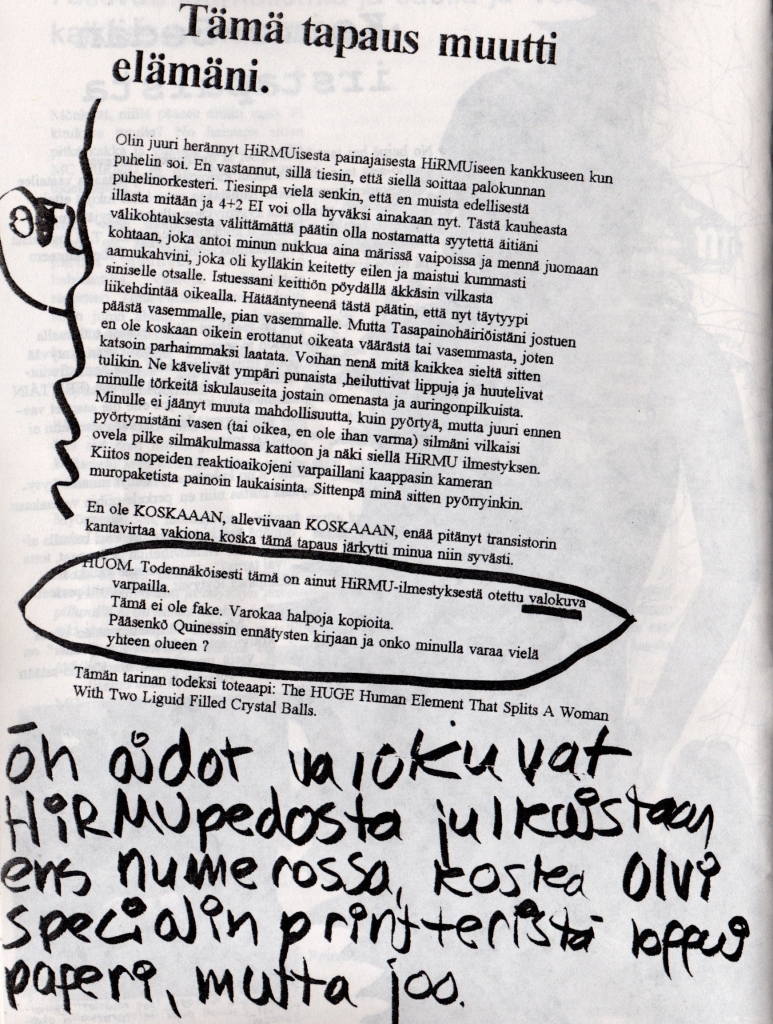 Tämä tapaus muutti
elämäni.
Olin juuri herännyt HiRMUisesta painajaisesta HiRMUiseen kankkuseen kun
puhelin soi. En vastannut, sillä tiesin, että siellä soittaa palokunnan
puhelinorkesteri. Tiesinpä vielä senkin, että en muista edellisestä
illasta mitään ja 4+2 EI voi olla hyväksi ainakaan nyt. Tästä kauheasta
välikohtauksesta välittämättä päätin olla nostamatta syytettä äitiäni
kohtaan, joka antoi minun nukkua aina märissä vaipoissa ja mennä juomaan
aamukahvini, joka oli kylläkin keitetty eilen ja maistui kummasti
siniselle otsalle. Istuessani keittiön pöydällä äkkäsin vilkasta
liikehdintää oikealla. Hätääntyneenä tästä päätin, että nyt täytyypi
päästä vasemmalle, pian vasemmalle. Mutta Tasapainohäiriöistäni jostuen
en ole koskaan oikein erottanut oikeata väärästä tai vasemmasta, joten
katsoin parhaimmaksi laatata. Voihan nenä mitä kaikkea sieltä sitten
tulikin. Ne kävelivät ympäri punaista ,heiluttivat lippuja ja huutelivat
minulle törkeitä iskulauseita jostain omenasta ja auringonpilkuista.
Minulle ei jäänyt muuta mahdollisuutta, kuin pyörtyä, mutta juuri ennen
pyörtymistäni vasen (tai oikea, en ole ihan varma) silmäni vilkaisi
ovela pilke silmäkulmassa kattoon ja näki siellä HiRMU ilmestyksen.
Kiitos nopeiden reaktioaikojeni varpaillani kaappasin kameran
muropaketista painoin laukaisinta. Sittenpä minä sitten pyörryinkin.
En ole KOSKAAAN, alleviivaan KOSKAAAN, enää pitänyt transistorin
kantavirtaa vakiona, koska tämä tapaus järkytti minua niin syvästi.
HUOM. Todennäköisesti tämä on ainut HiRMU-ilmestyksestä otettu valokuva
varpailla.
Tämä ei ole fake. Varokaa halpoja kopioita.
Pääsenkö Quinessin ennätysten kirjaan ja onko minulla varaa vielä
yhteen olueen ?
Tämän tarinan todeksi toteaapi: The HUGE Human Element That Splits A Woman
With Two Liguid Filled Crystal Balls.
öh aidot valokuvat
HiRMUpedosta julkaistaan
ens numerossa, koskea OLVi
specialin printteristä loppui
paperi, mutta joo.